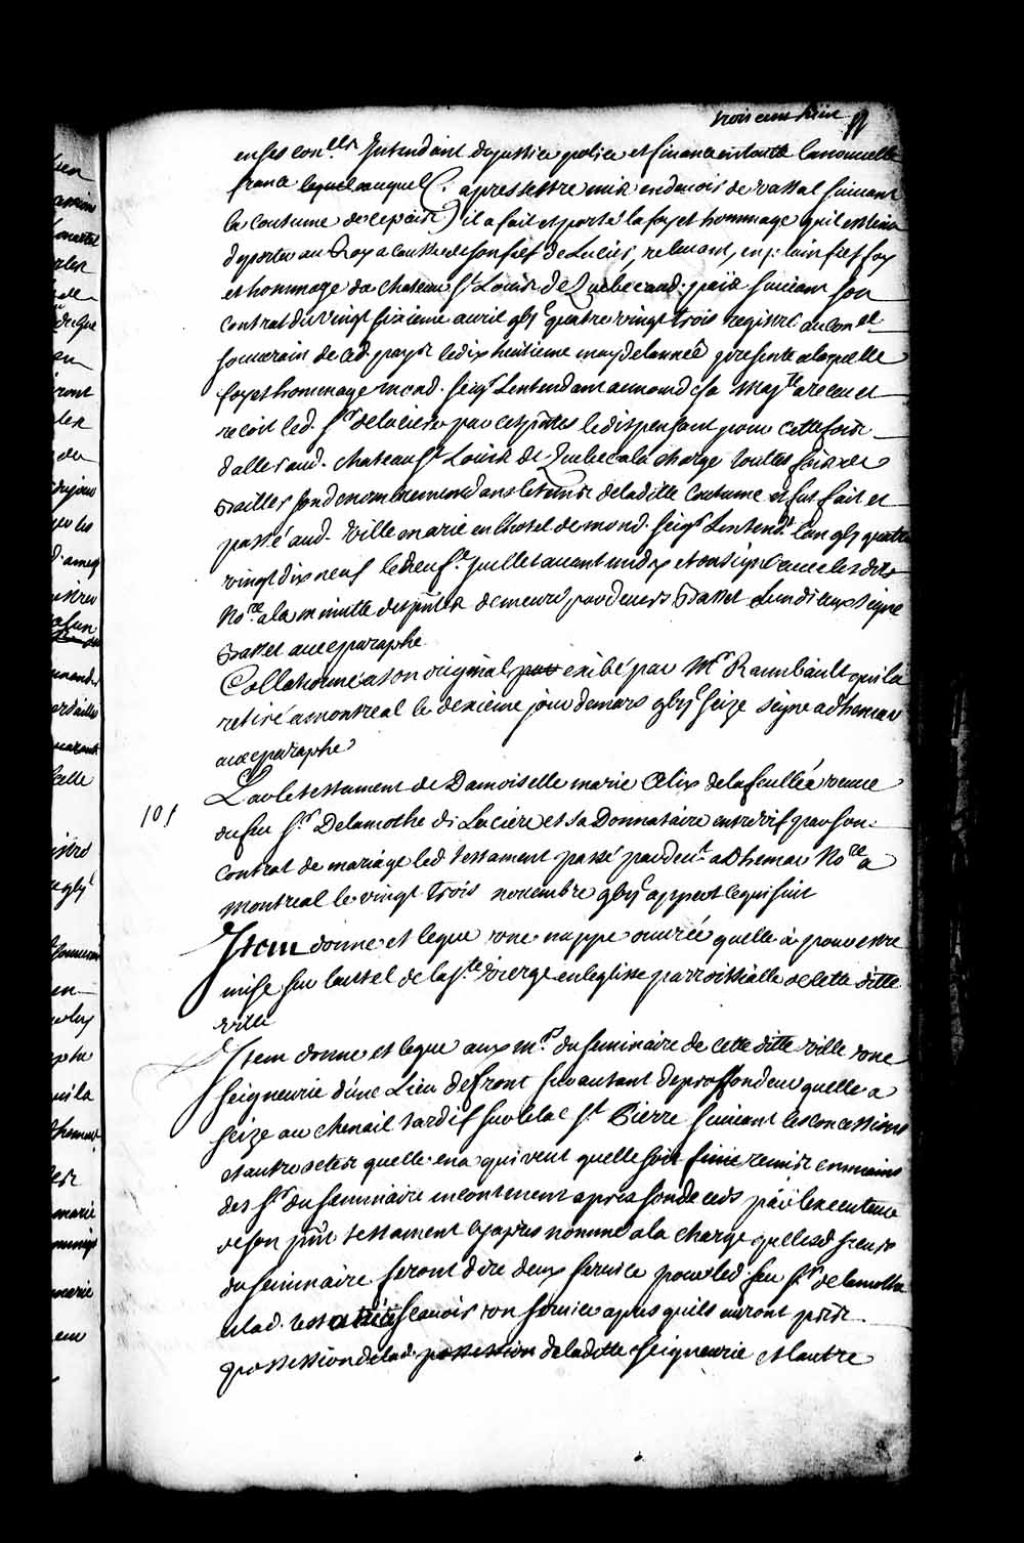 trois cent huit
en ses con.lls Intendant de justice police et finance en toutte la nouvelle
france lequel auquel (apres sestre mis en devoir de vassal suivant
la coutume de ce pais) il a fait et porté la foy et hommage quil est tenu
de porter au Roy a cause de son fief de Luciere, relevant, en plain fief foy
et hommage du chateau St Louis de Quebec aud. païs suivant son
contrat du vingt sixieme avril gbjc quatre vingt trois registré au con.el
souverain de ced. pays le dix huitieme may de lannée presente a laquelle
foy et hommage mond. seigr Lintendant au nom de sa Majté a receu et
recoit led. Sr delaciere par ces pntes le dispensant pour cette fois
daller aud. chateau St Louis de Quebec a la charge
bailler son denombrement dans le tems de ladite Coutume et fut fait et
passé aud. Ville marie en lhostel de mond. seigr Lintendt lan gbjc quatre
vingt dix neuf le neufe juillet avant midy et ont signé avec lesdits
No.re a la minutte des pntes demeuré pardevers Basset
Basset avec paraphe
Collationné a son original par exibé par Mr Raimbault qui la
retiré a montreal le dexieme jour de mars gbijc seize signé adhemar
avec paraphe
101
Par le testament de Damoiselle marie Celix de la feullée veuve
du feu Sr Delamothe de Luciere et sa Donnataire entrevif par son
contrat de mariage led testament passé pardevt adhemar No.re a
montreal le vingt trois novembre gbijc appert ce qui suit
Item donne et legue une nappe ouvrée quelle a pour estre
mise sur lautel de la Ste Vierge en leglise parroissialle de cette ditte
ville
Item donne et legue aux mrs du seminaire de cette ditte ville une
seigneurie dune Lieu de front sur autant de proffondeur quelle a
seize au chenail tardif sur le lac St Pierre suivant les concessions
et autres titres quelle en a qui veut quelle soit remis en mains
des Srs du seminaire incontinent apres son deceds par lexecuteur
de son pnt testament cy apres nommé a la charge que lesd. sieurs
du seminaire feront dire deux service pour led. feu Sr de lamothe
et lad. testatrice scavoir un service apres quils auront pris
possession de lad. possession de laditte seigneurie et lautre